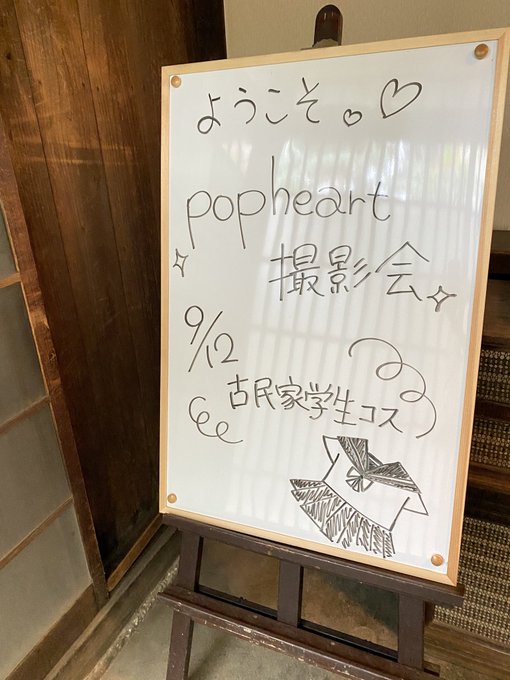 ようこそ。♡♡
popheart
撮影会
9/12
古民家学生コス